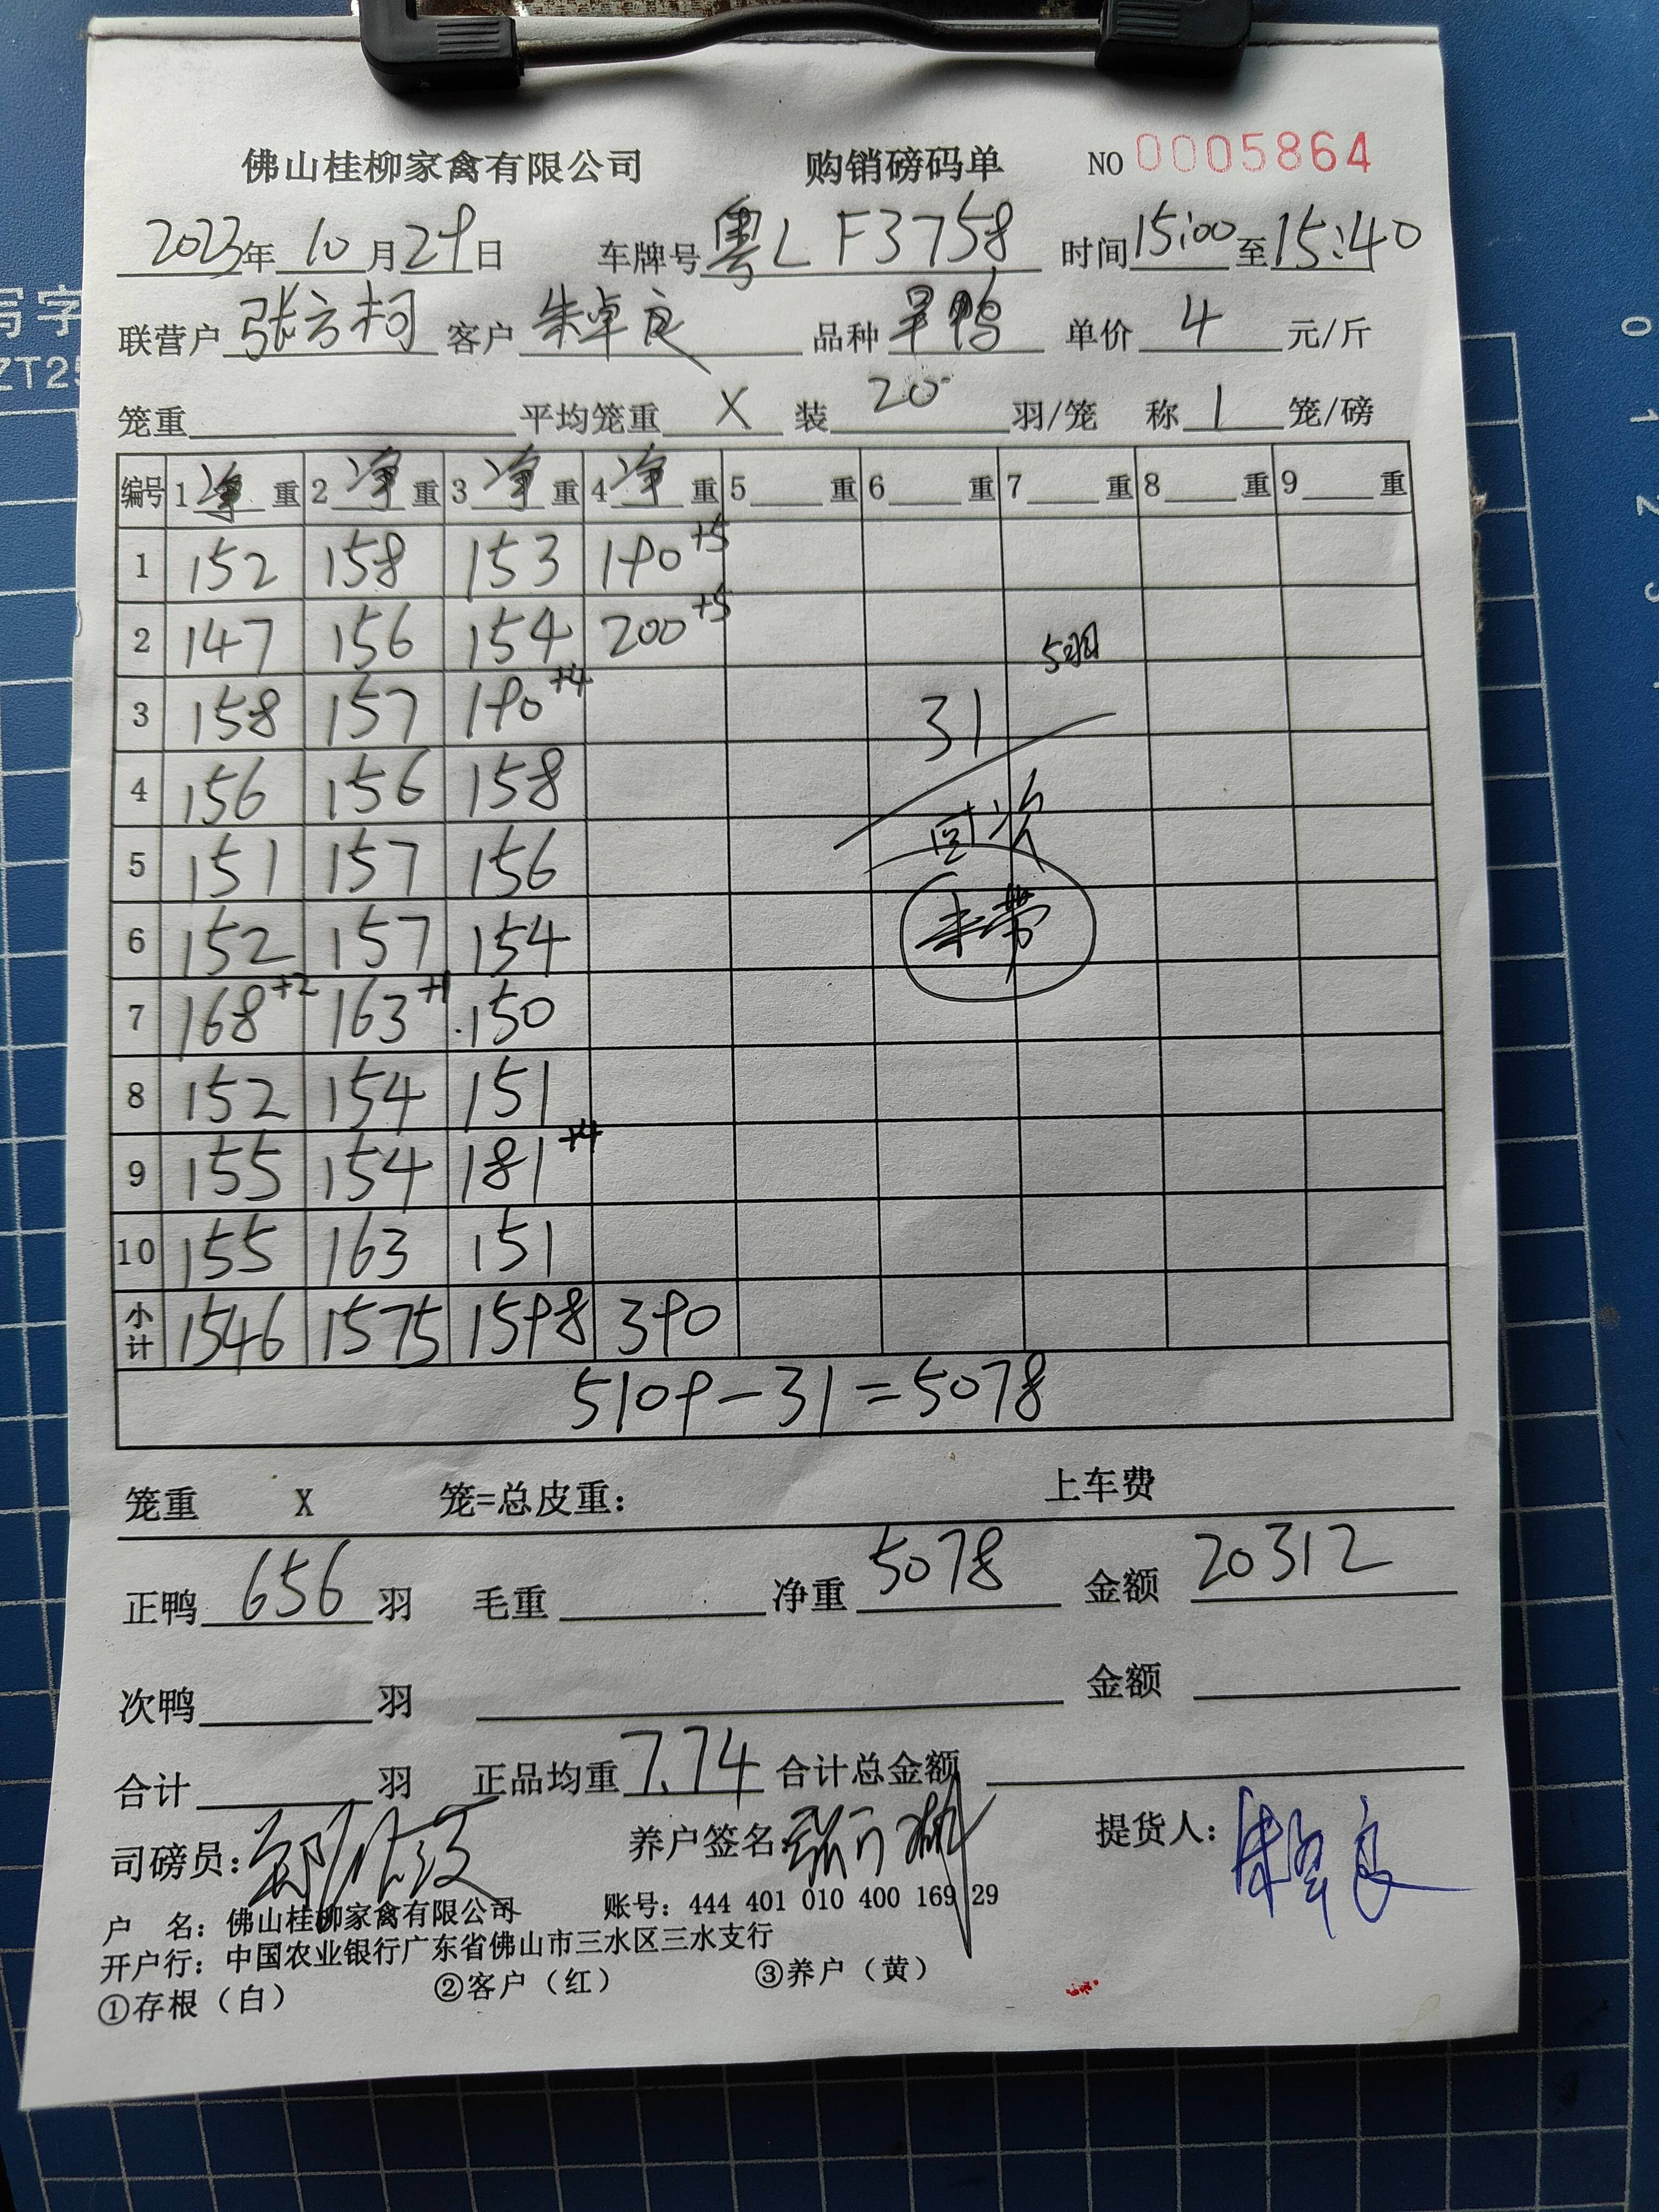 佛山桂柳家禽有限公司 购销磅码单 NO 0005864
2023年 10 月 29 日 车牌号 粤L F3758 时间 15:00 至 15:40
联营户 张方柯 客户 朱卓良 品种 鸭 单价 4 元/斤
笼重 平均笼重 X 装 20 羽/笼 称 1 笼/磅
编号 1 净 重 2 净 重 3 净 重 4 净 重 5 重 6 重 7 重 8 重 9 重
1 152 158 153 190+5
2 147 156 154 200+5 5羽
3 158 157 190+4 31
4 156 156 158 回次
5 151 157 156
6 152 157 154 未带
7 168+2 163+1 150
8 152 154 151
9 155 154 181+4
10 155 163 151
小计 1546 1575 1598 390
5109-31=5078
笼重 X 笼=总皮重: 上车费
正鸭 656 羽 毛重 净重 5078 金额 20312
次鸭 羽 金额
合计 羽 正品均重 7.74 合计总金额
司磅员: 养户签名 张方柯 提货人: 朱卓良
户 名: 佛山桂柳家禽有限公司 账号: 444 401 010 400 169 29
开户行: 中国农业银行广东省佛山市三水区三水支行
①存根（白） ②客户（红） ③养户（黄）
写字
ZT25
0 1 2 3